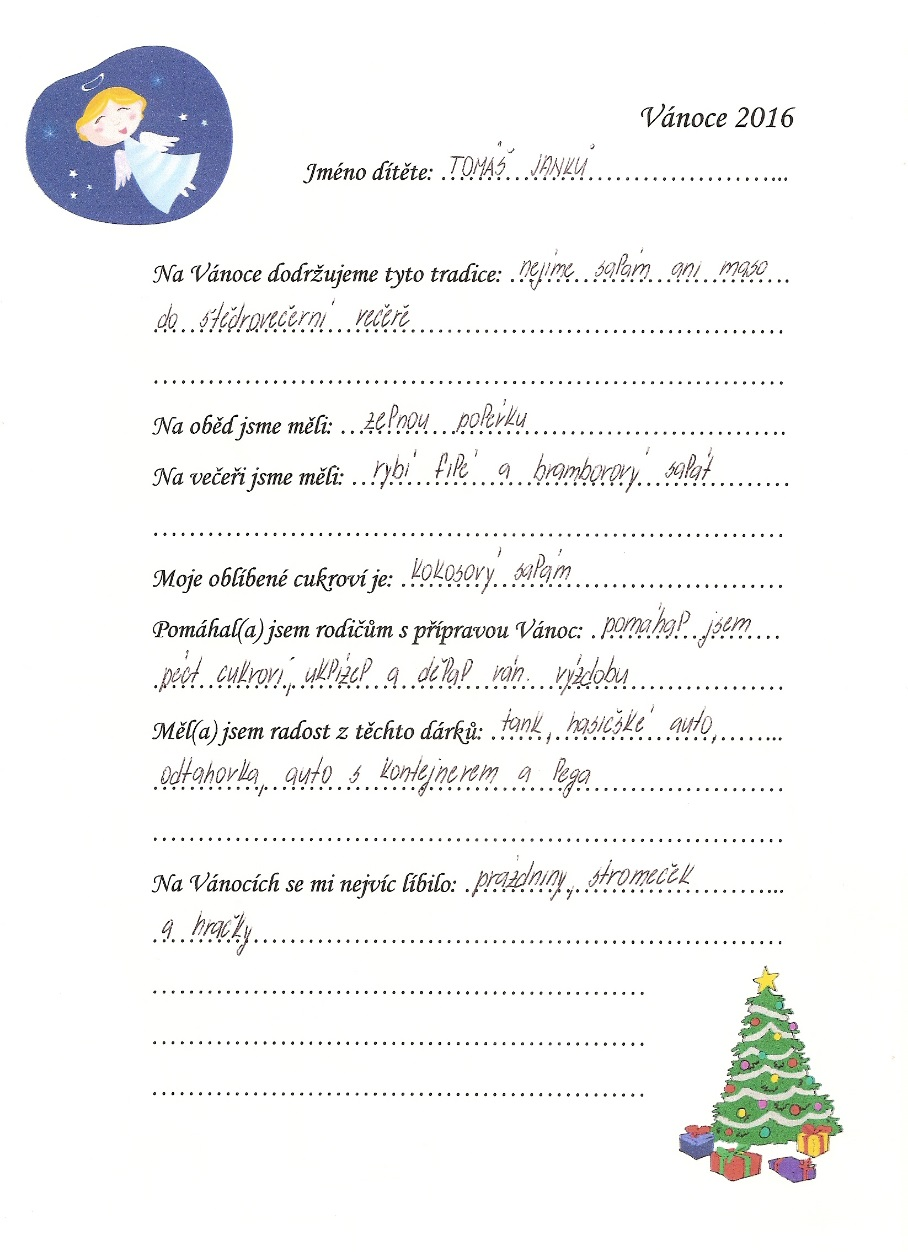 Vánoce 2016
Jméno dítěte: TOMÁŠ JANKŮ
Na Vánoce dodržujeme tyto tradice: nejíme salám ani maso
do štědrovečerní večeře
Na oběd jsme měli: zelnou polévku
Na večeři jsme měli: rybí filé a bramborový salát
Moje oblíbené cukroví je: kokosový salám
Pomáhal(a) jsem rodičům s přípravou Vánoc: pomáhal jsem
péct cukroví, uklízel a dělal ván. výzdobu
Měl(a) jsem radost z těchto dárků: tank, hasičské auto,
odtahovka, auto s kontejnerem a lega
Na Vánocích se mi nejvíc líbilo: prázdniny, stromeček
a hračky